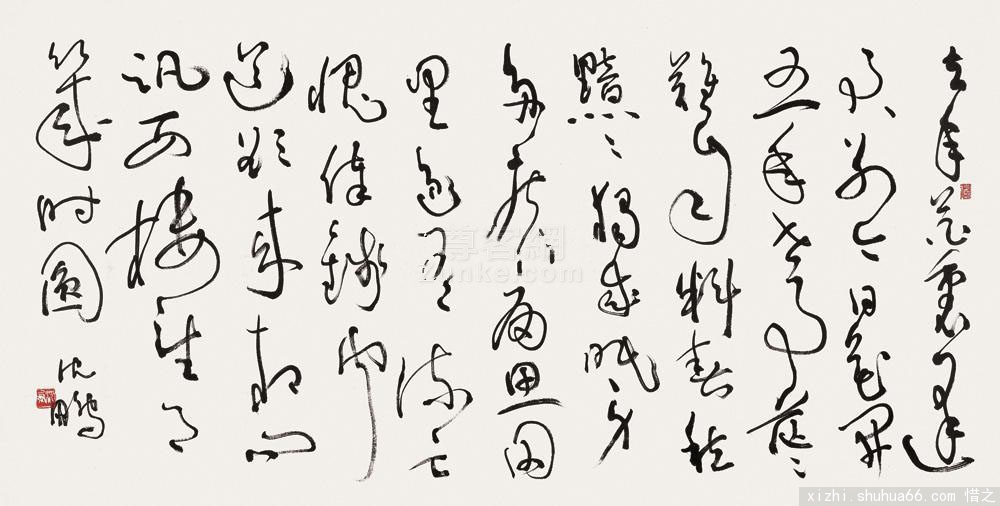 去年花裏逢
君別今日花開
又一年世事茫茫
難自料春愁
黯黯獨成眠身
多疾病思田
里邑有流亡
愧俸錢聞
道欲來相問
訊西樓望月
幾時圓
沈鵬
尊客網
Zunke.com
xizhi.shuhua66.com 惜之